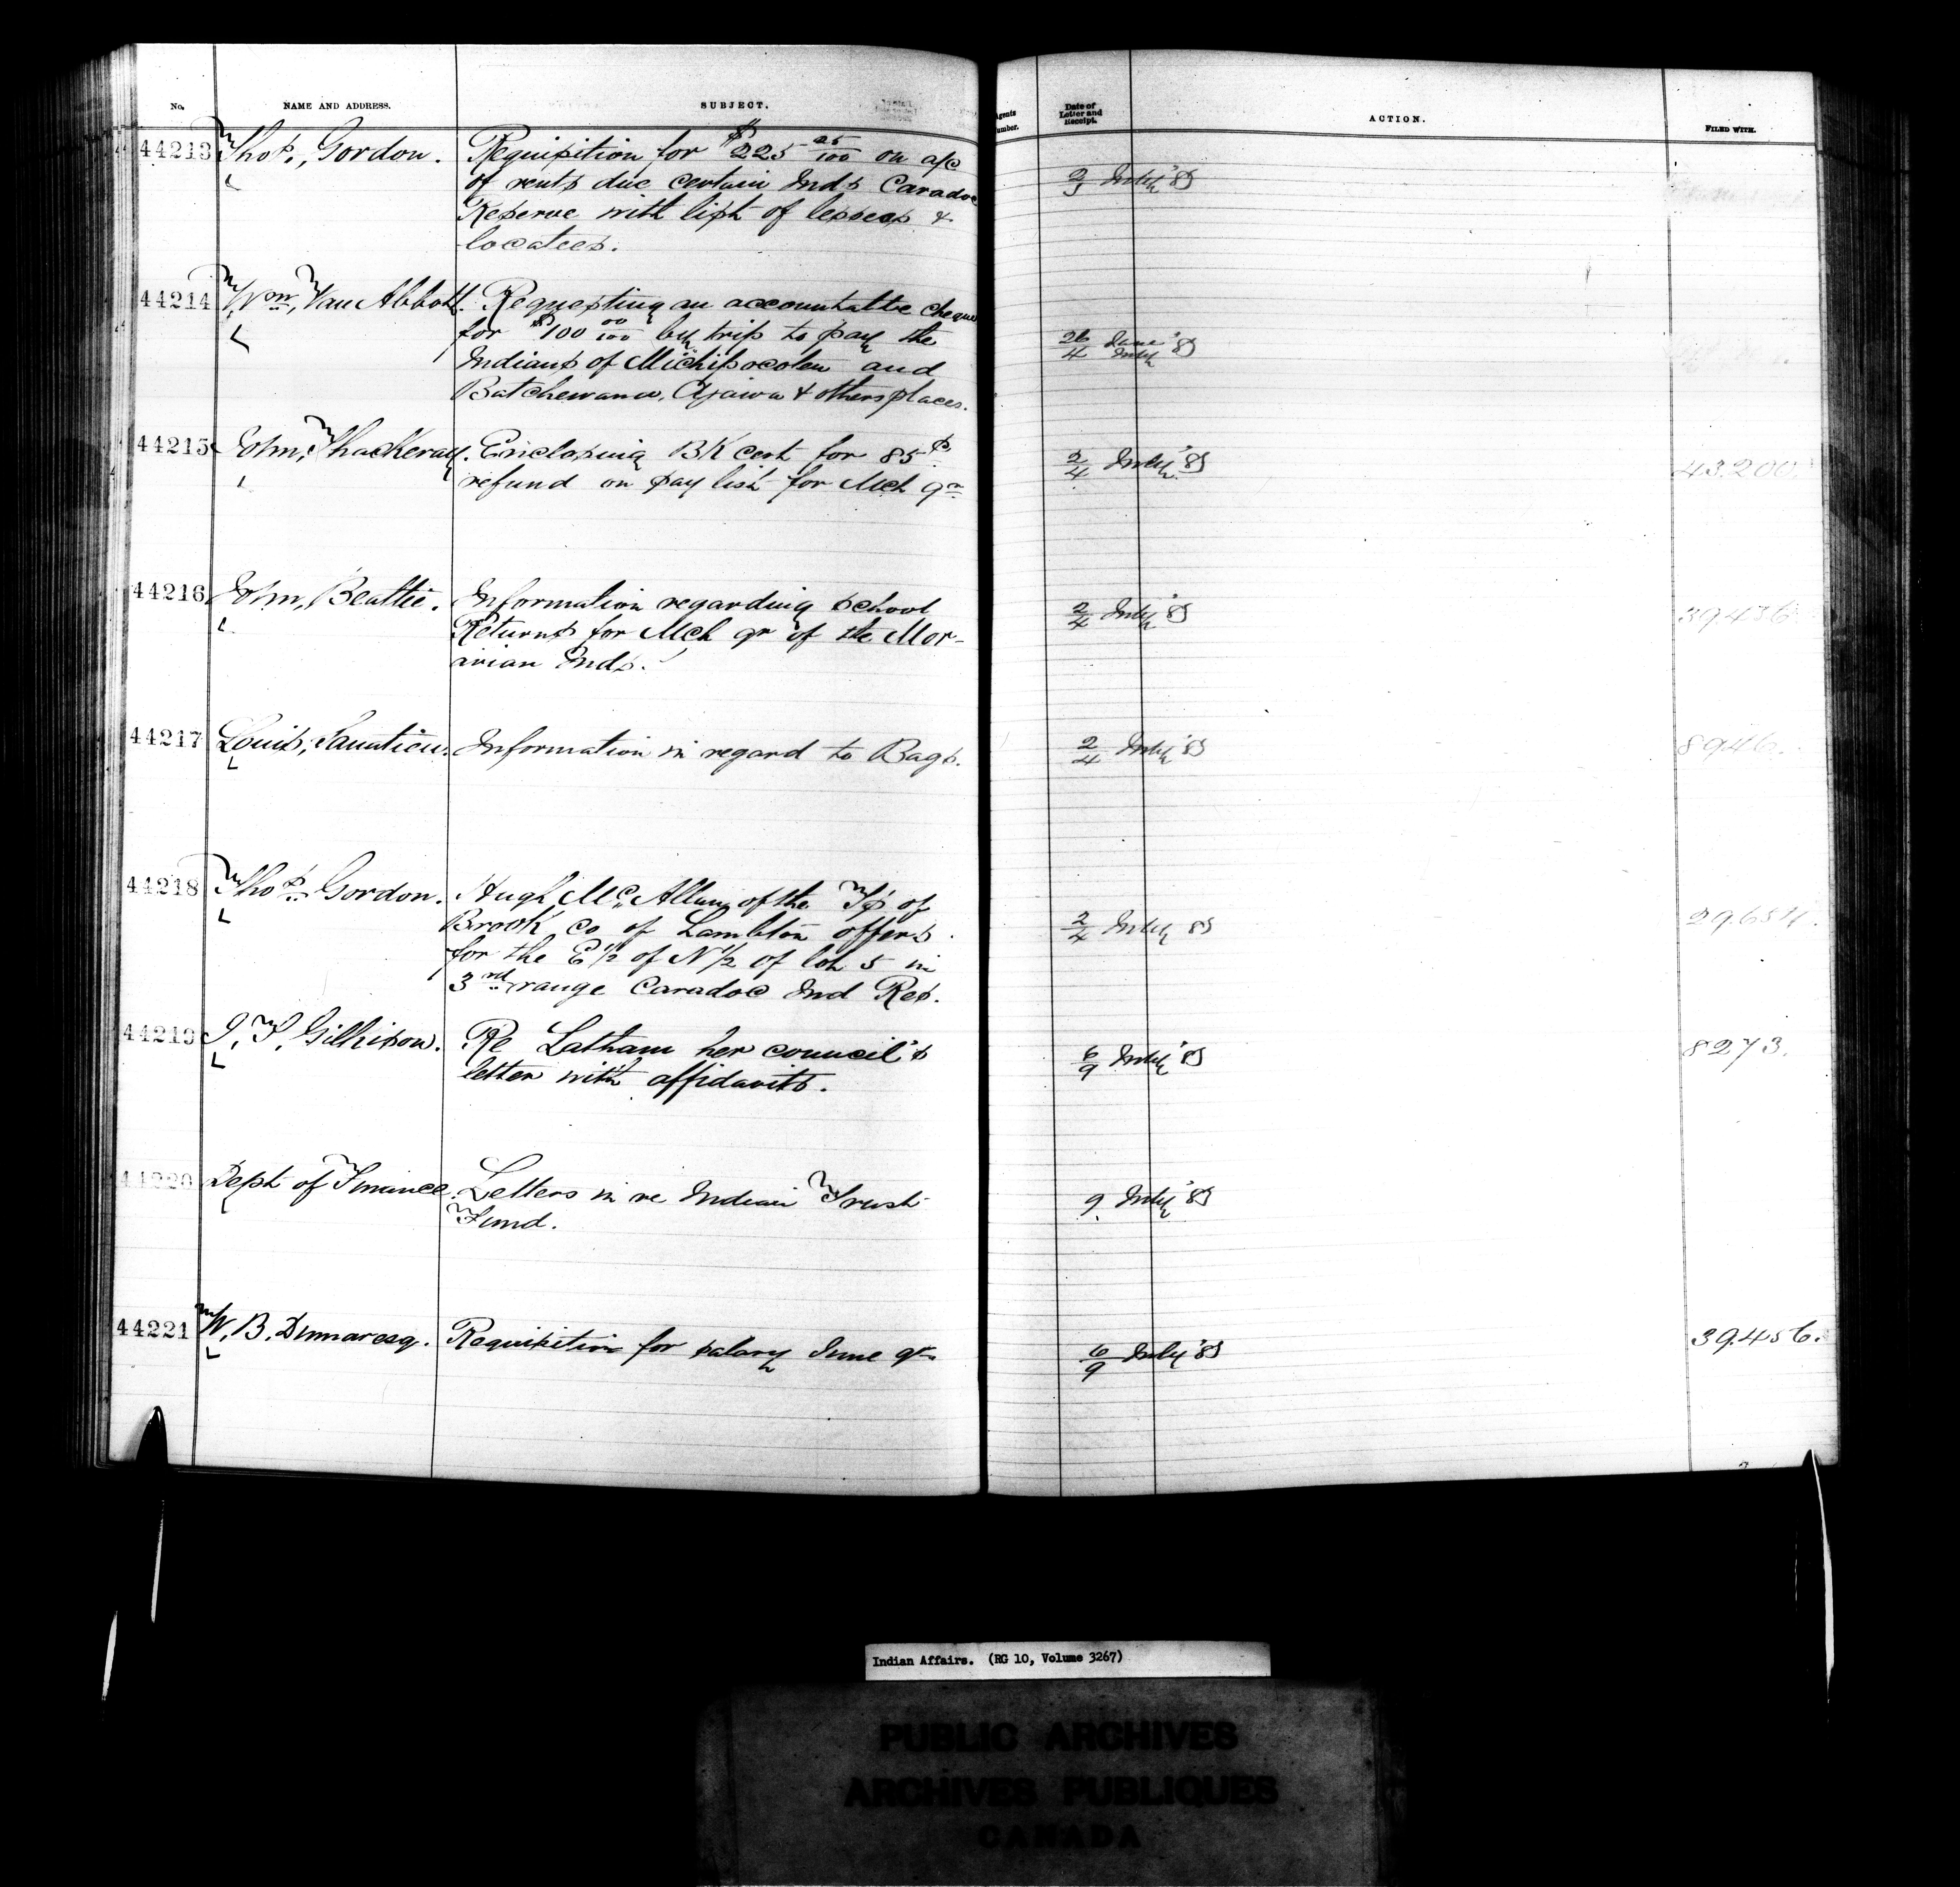 No.
NAME AND ADDRESS.
SUBJECT.
Agents
Number.
Date of
Letter and
Receipt.
ACTION.
FILED WITH.
44213
Thos, Gordon.
Requisition for $225 25/100 on a/c
of rents due certain Inds Caradoc
Reserve with list of lessees &
locatees.
2/3 July '85
44214
Wm, Van Abbott.
Requesting an accountable cheque
for $100 00/100 by trip to pay the
Indians of Michipocoten and
Batchewana, & others places.
26/4 June/July '85
44215
John, Thackeray.
Enclosing BK cert for 85
refund on pay list for Mch qr
2/4 July '85
43.200.
44216
John, Beattie.
Information regarding school
Returns for Mch qr of the Mor-
avian Inds.
2/4 July '85
39436
44217
Louis,
Information in regard to Bags.
2/4 July '85
8946.
44218
Thos. Gordon.
Hugh Mc. Allum of the Tp of
Brook Co of Lambton offers
for the E 1/2 of N 1/2 of lot 5 in
3rd range Caradoc Ind Res.
2/4 July 85
29.654.
44219
J, T, Gilkison.
Re Latham her council's
letter with affidavits.
6/9 July '85
8273.
44220
Dept of Finance.
Letters in re Indian Trust
Fund.
9. July '85
44221
W, B. Dumaresq.
Requisition for salary June qr
6/9 July '85
39.456.
Indian Affairs. (RG 10, Volume 3267)
PUBLIC ARCHIVES
ARCHIVES PUBLIQUES
CANADA